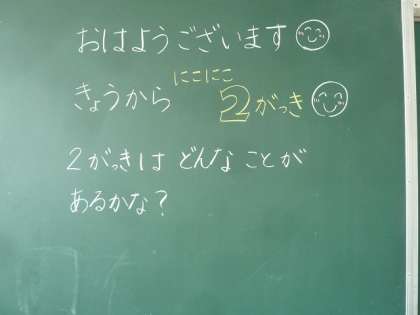 おはようございます
にこにこ
きょうから 2がっき
2がっきは どんな ことが
あるかな?